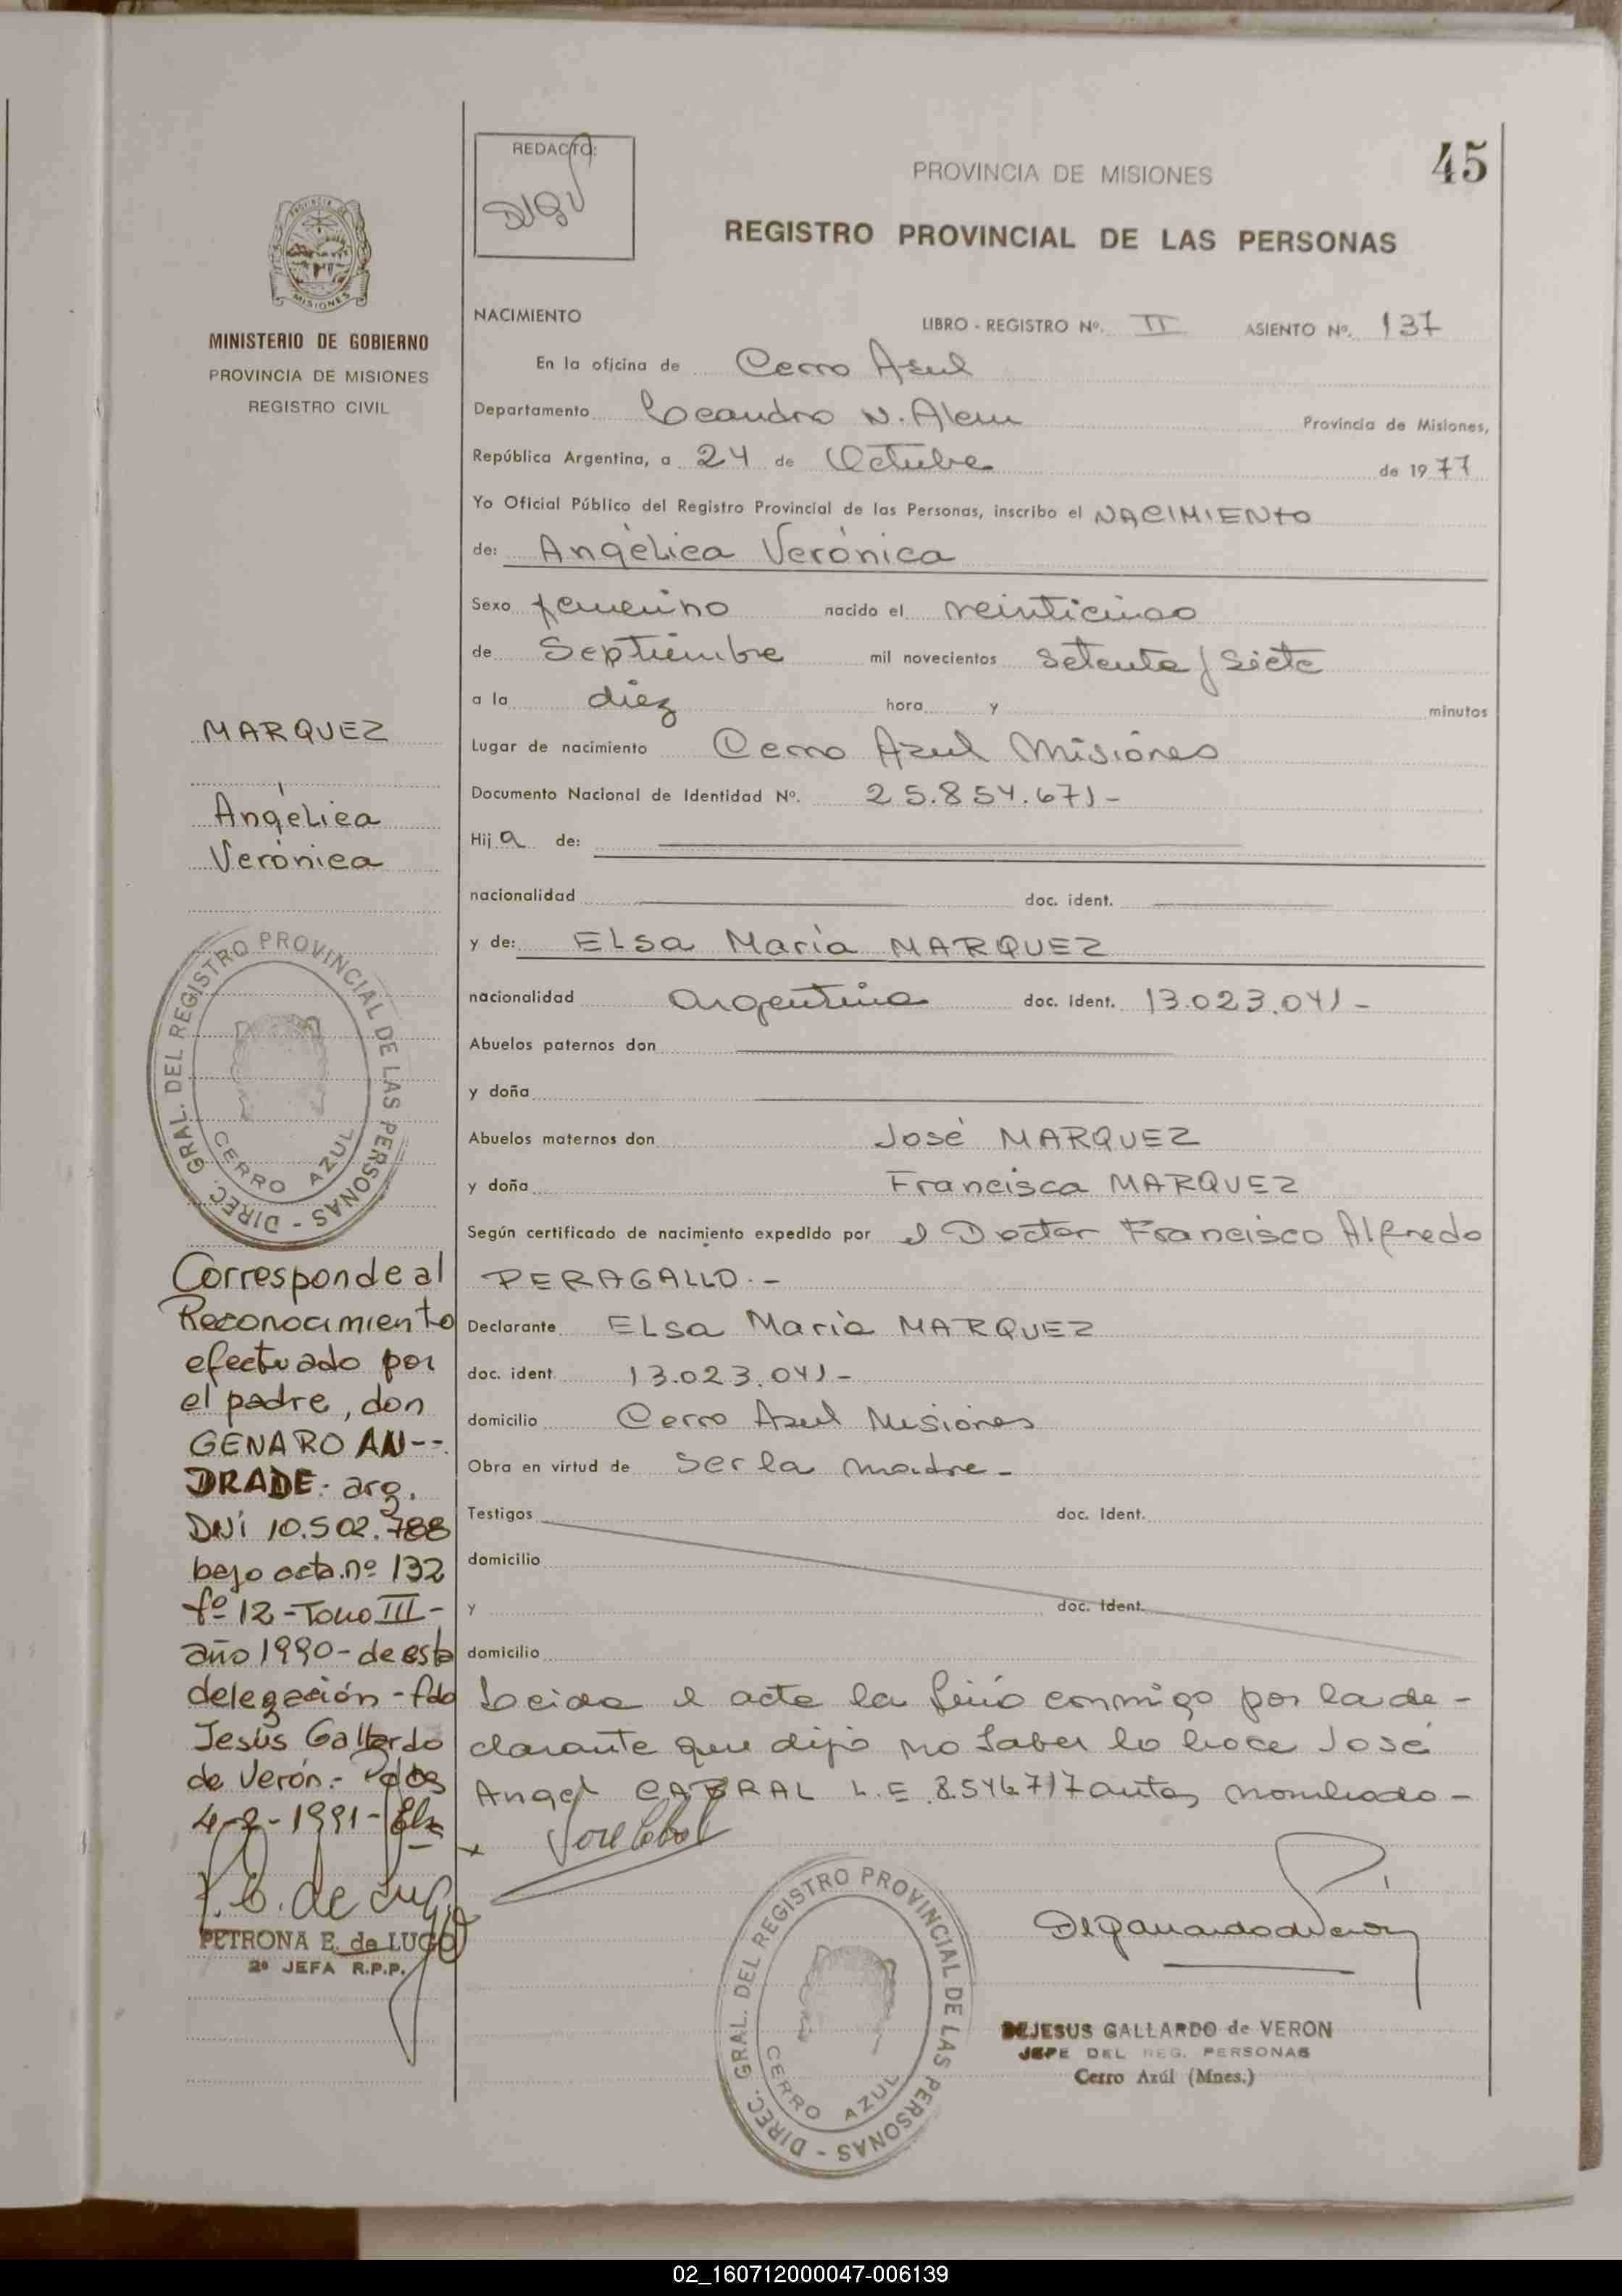 45
REDACTO:
PROVINCIA DE MISIONES
REGISTRO PROVINCIAL DE LAS PERSONAS
MISIONES
MINISTERIO DE GOBIERNO
PROVINCIA DE MISIONES
REGISTRO CIVIL
MARQUEZ
Angélica
Verónica
DIREC. GRAL. DEL REGISTRO PROVINCIAL DE LAS PERSONAS -
CERRO AZUL
Corresponde al
Reconocimiento
efectuado por
el padre, don
GENARO AN--
DRADE- arg.
DNi 10.502.788
bajo acta nº 132
fº 12 - Tomo III -
año 1990 - de esta
delegación - fdo
Jesús Gallardo
de Verón.- Pdas
4-2-1991-
P. E. de Lugo
PETRONA E. de LUGO
2º JEFA R.P.P.
NACIMIENTO LIBRO - REGISTRO Nº. II ASIENTO Nº. 137
En la oficina de Cerro Azul
Departamento Leandro N. Alem Provincia de Misiones,
República Argentina, a 24 de Octubre de 1977
Yo Oficial Público del Registro Provincial de las Personas, inscribo el NACIMIENTO
de: Angélica Verónica
Sexo femenino nacido el veinticinco
de Septiembre mil novecientos setenta y siete
a la diez hora y minutos
Lugar de nacimiento Cerro Azul Misiones
Documento Nacional de Identidad Nº. 25.854.671-
Hija de:
nacionalidad doc. ident.
y de: ELsa María MARQUEZ
nacionalidad argentina doc. ident. 13.023.041-
Abuelos paternos don
y doña
Abuelos maternos don José MARQUEZ
y doña Francisca MARQUEZ
Según certificado de nacimiento expedido por el Doctor Francisco Alfredo
PERAGALLO.-
Declarante ELsa María MARQUEZ
doc. ident. 13.023.041-
domicilio Cerro Azul Misiones
Obra en virtud de ser la madre-
Testigos doc. ident.
domicilio
y doc. ident.
domicilio
Leida el acta la firmó conmigo por la de-
clarante que dijo no saber lo hace José
Angel CABRAL L.E. 8.546.717 antes nombrado-
DIREC. GRAL. DEL REGISTRO PROVINCIAL DE LAS PERSONAS -
CERRO AZUL
JESUS GALLARDO de VERON
JEFE DEL REG. PERSONAS
Cerro Azúl (Mnes.)
02_160712000047-006139